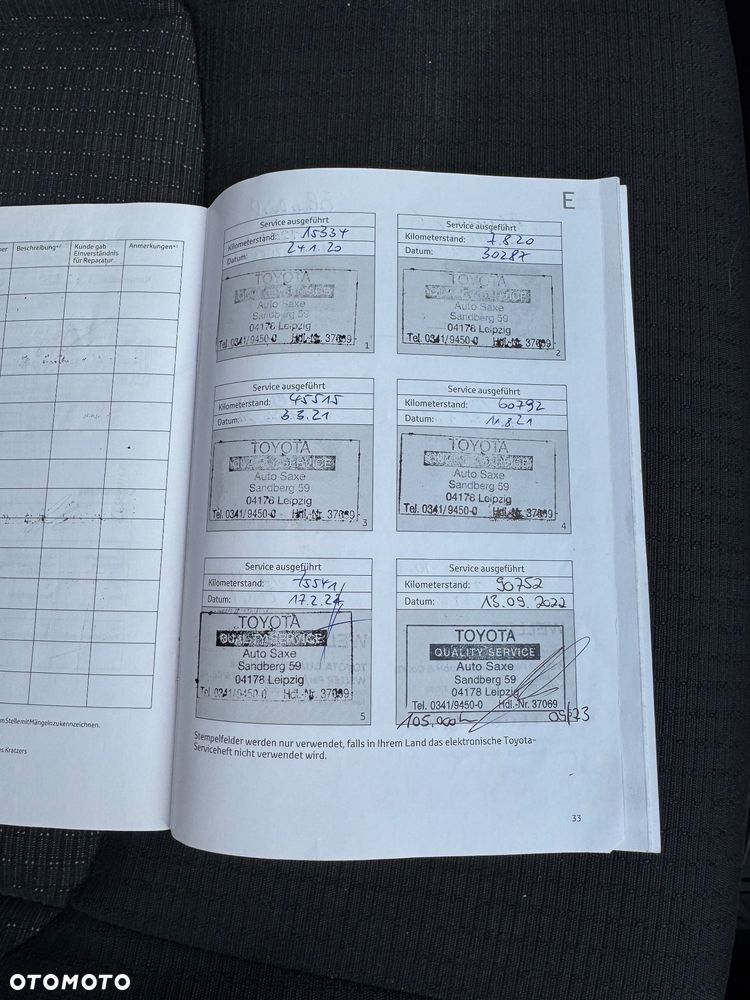 ber
Beschreibung*⁾
Kunde gab
Einverständnis
für Reparatur.
Anmerkungen*⁾
m Stelle mit Mängeln zu kennzeichnen.
es Kratzers
E
Service ausgeführt
Kilometerstand: 15334
Datum: 24.1.20
TOYOTA
QUALITY SERVICE
Auto Saxe
Sandberg 59
04178 Leipzig
Tel. 0341/9450-0 Hdl.-Nr. 37069
1
Service ausgeführt
Kilometerstand: 7.8.20
Datum: 30287
TOYOTA
QUALITY SERVICE
Auto Saxe
Sandberg 59
04178 Leipzig
Tel. 0341/9450-0 Hdl.-Nr. 37069
2
Service ausgeführt
Kilometerstand: 45515
Datum: 3.3.21
TOYOTA
QUALITY SERVICE
Auto Saxe
Sandberg 59
04178 Leipzig
Tel. 0341/9450-0 Hdl.-Nr. 37069
3
Service ausgeführt
Kilometerstand: 60792
Datum: 11.8.21
TOYOTA
QUALITY SERVICE
Auto Saxe
Sandberg 59
04178 Leipzig
Tel. 0341/9450-0 Hdl.-Nr. 37069
4
Service ausgeführt
Kilometerstand: 75541
Datum: 17.2.22
TOYOTA
QUALITY SERVICE
Auto Saxe
Sandberg 59
04178 Leipzig
Tel. 0341/9450-0 Hdl.-Nr. 37069
5
Service ausgeführt
Kilometerstand: 90752
Datum: 13.09.2022
TOYOTA
QUALITY SERVICE
Auto Saxe
Sandberg 59
04178 Leipzig
Tel. 0341/9450-0 Hdl.-Nr. 37069
105.000 05/23
Stempelfelder werden nur verwendet, falls in Ihrem Land das elektronische Toyota-
Serviceheft nicht verwendet wird.
33
OTOMOTO